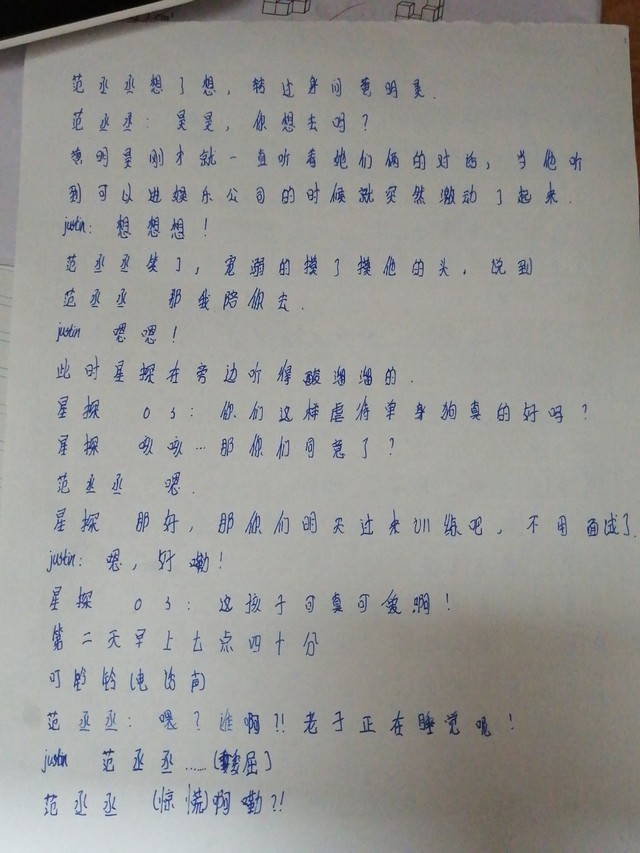 范丞丞想了想，转过身问黄明昊.
范丞丞：昊昊，你想去吗？
黄明昊刚才就一直听着她们俩的对话，当他听
到可以进娱乐公司的时候就突然激动了起来.
justin：想想想！
范丞丞笑了，宠溺的摸了摸他的头，说到
范丞丞 那我陪你去.
justin 嗯嗯！
此时星探在旁边听得酸溜溜的.
星探 OS：你们这样虐待单身狗真的好吗？
星探 咳咳…那你们同意了？
范丞丞 嗯.
星探 那好，那你们明天过来训练吧，不用面试了.
justin：嗯，好嘞！
星探 OS：这孩子可真可爱啊！
第二天早上七点四十分
叮铃铃(电话声)
范丞丞：喂？谁啊?!老子正在睡觉呢！
justin 范丞丞……(委屈]
范丞丞 (惊慌)啊嘞?!